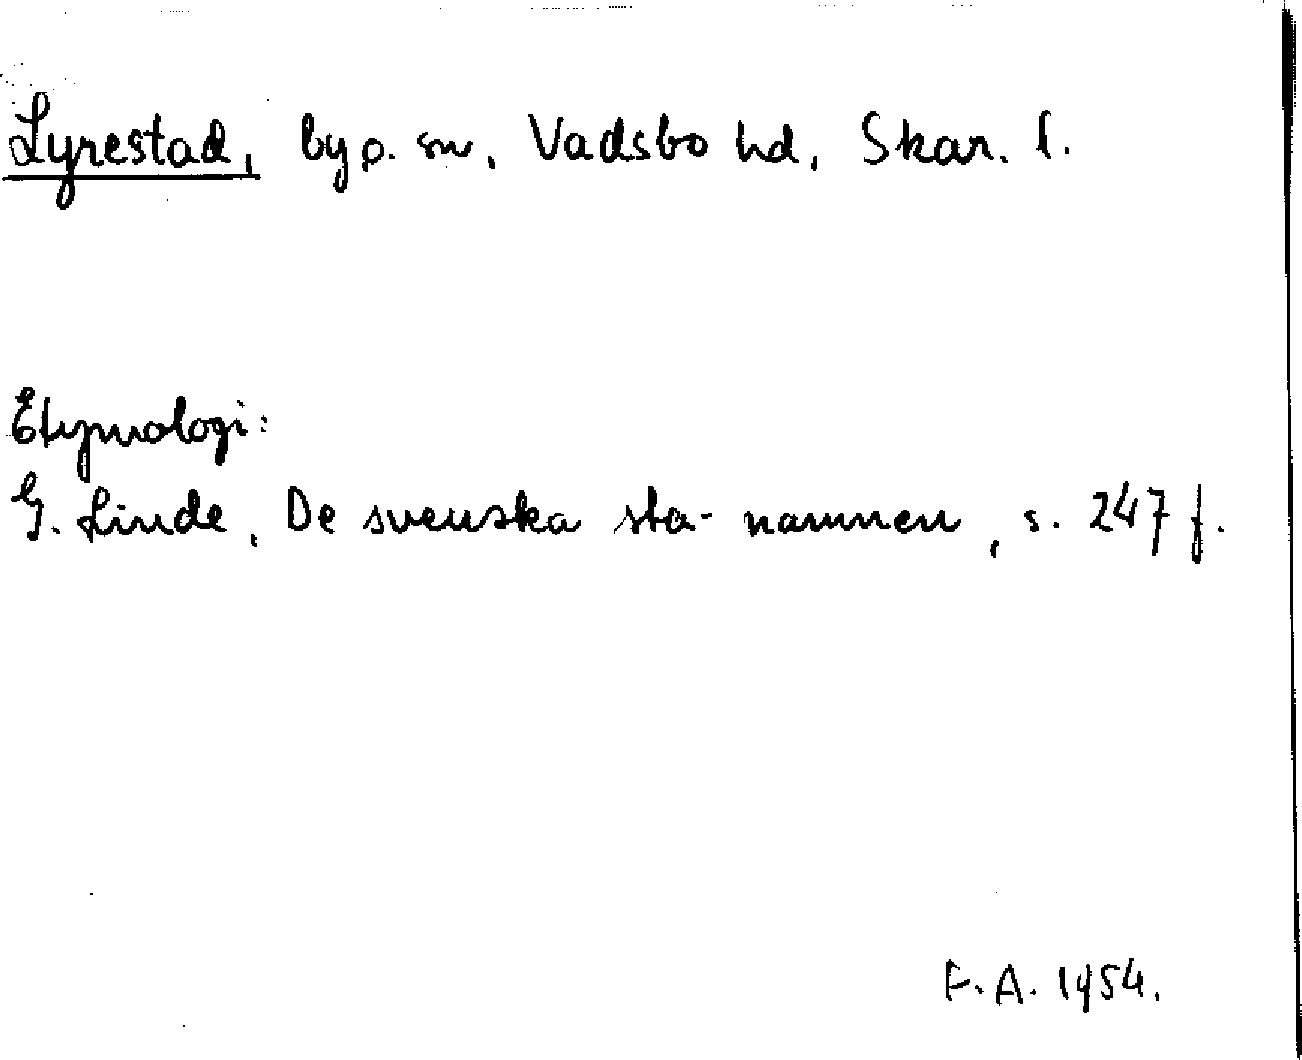 Lyrestad, by o. sn, Vadsbo hd, Skar. l.
Etymologi:
G. Linde, De svenska sta-namnen, s. 247 f.
F.A. 1954.